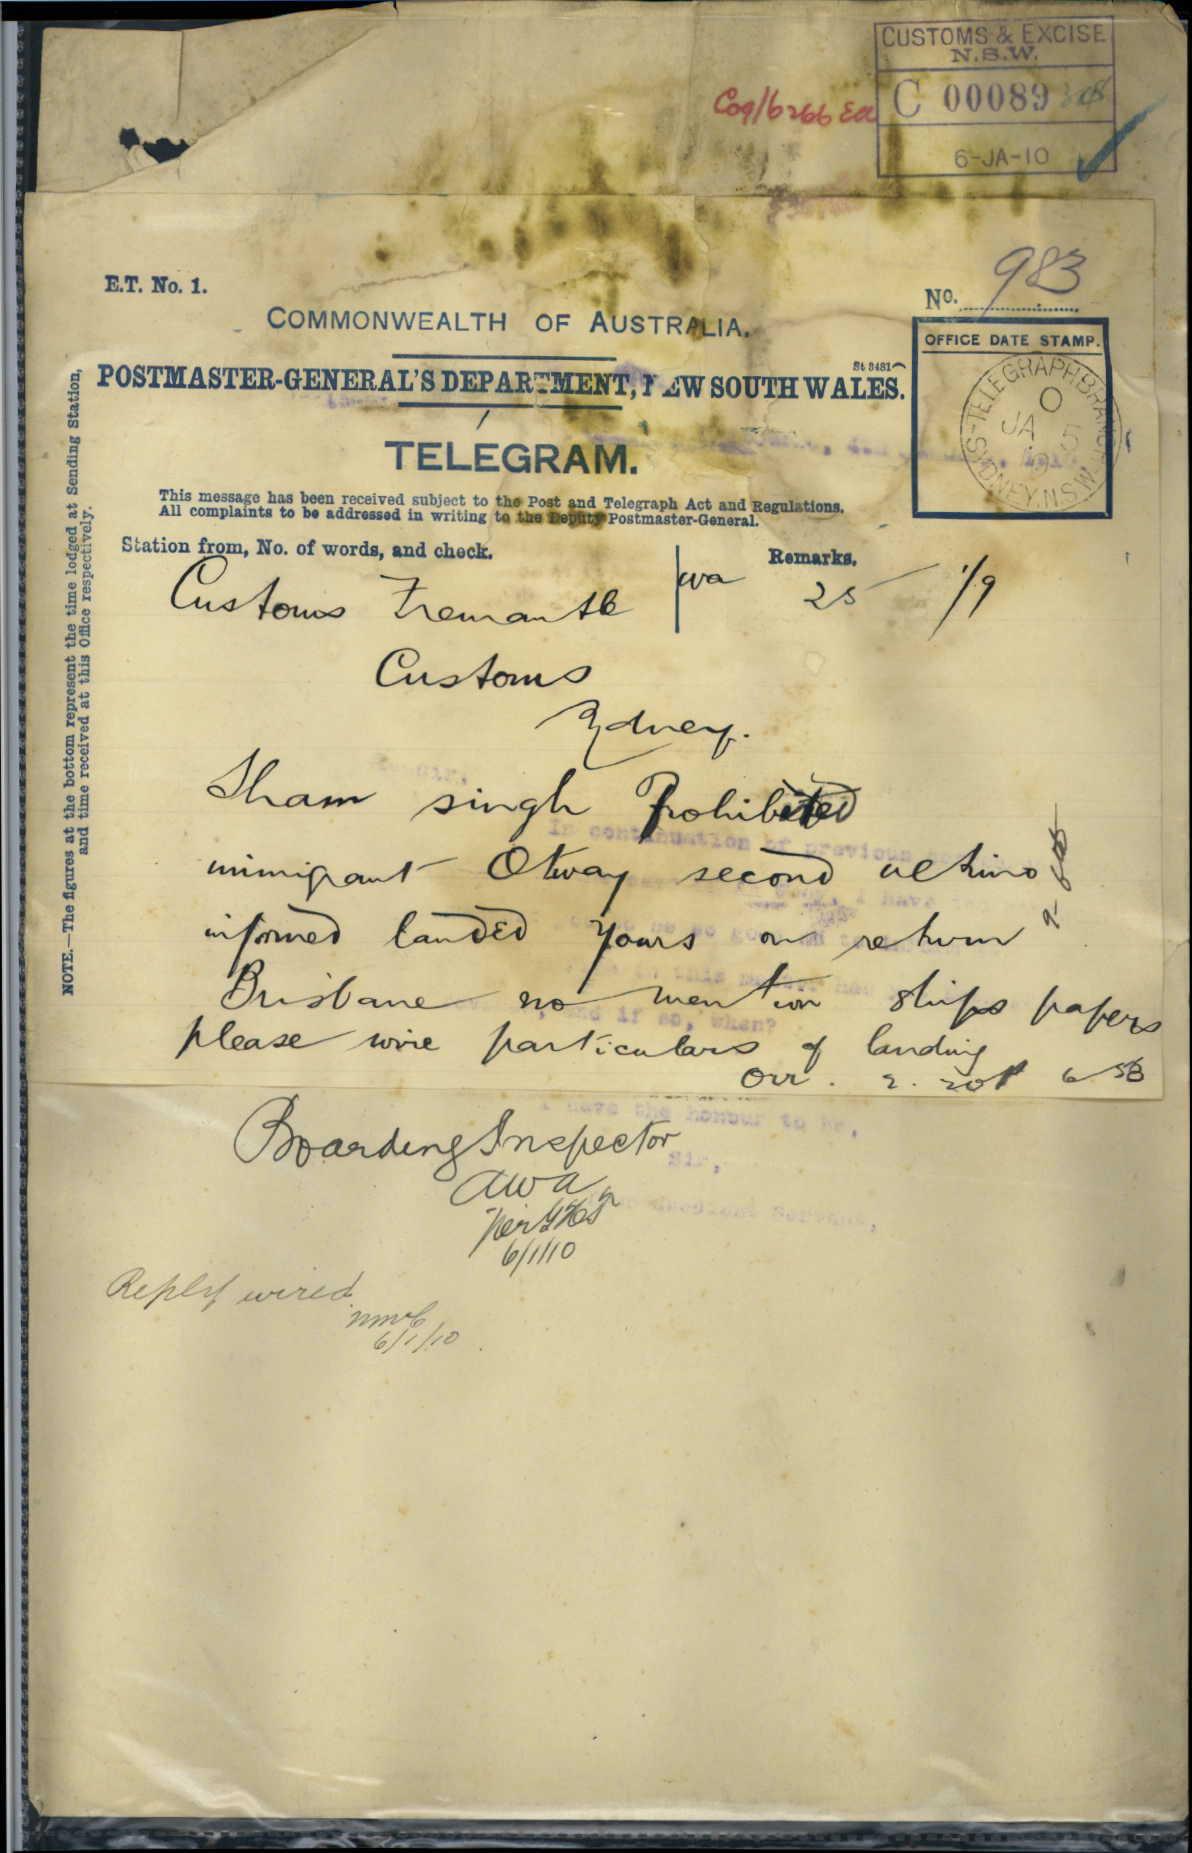 CUSTOMS & EXCISE
N.S.W.
C 00089
6-JA-10
C09/6266 Ea
E.T. No. 1.
No. 983
COMMONWEALTH OF AUSTRALIA.
St 3481
POSTMASTER-GENERAL'S DEPARTMENT, NEW SOUTH WALES.
OFFICE DATE STAMP.
TELEGRAPH BRANCH
JA 5
SYDNEY. N.S.W
TELEGRAM.
This message has been received subject to the Post and Telegraph Act and Regulations.
All complaints to be addressed in writing to the Deputy Postmaster-General.
NOTE.—The figures at the bottom represent the time lodged at Sending Station,
and time received at this Office respectively.
Station from, No. of words, and check.
Remarks.
Customs Fremantle wa 25 1/9
Customs
Sydney.
Sham singh Prohibited
immigrant Otway second ultimo
informed landed yours on return
Brisbane no mention ships papers
please wire particulars of landing
Orr. 2. 20p 6 58
Boarding Inspector
AWA
6/1/10
Reply wired
6/1/10
In continuation of previous
and if so, when?
I have the honour to be,
Sir,